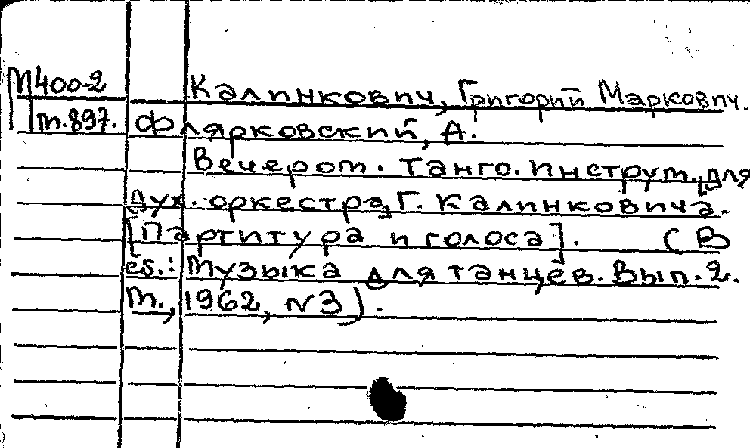 М400-2 Калинкович, Григорий Маркович.
т.897. Флярковский, А.
Вечером. Танго. Инструм. для
дух. оркестра Г. Калинковича.
[Партитура и голоса]. (В
сб.: Музыка для танцев. Вып. 2.
М., 1962, №3).